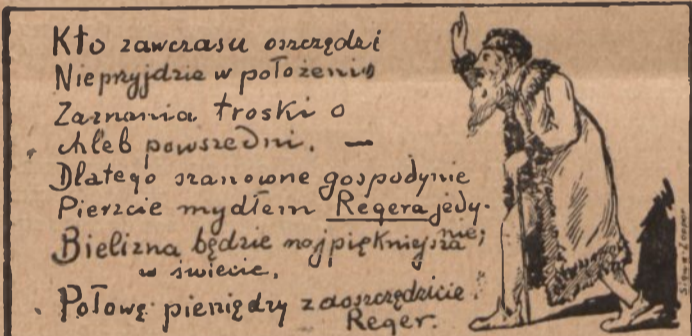 Kto zawczasu oszczędzi
Nie przyjdzie w położenie
Zaznania troski o
chleb powszedni. —
Dlatego szanowne gospodynie
Pierzcie mydłem Regera jedy-
nie;
Bielizna będzie najpiękniejsza
w świecie,
Połowę pieniędzy zaoszczędzicie.
Reger.